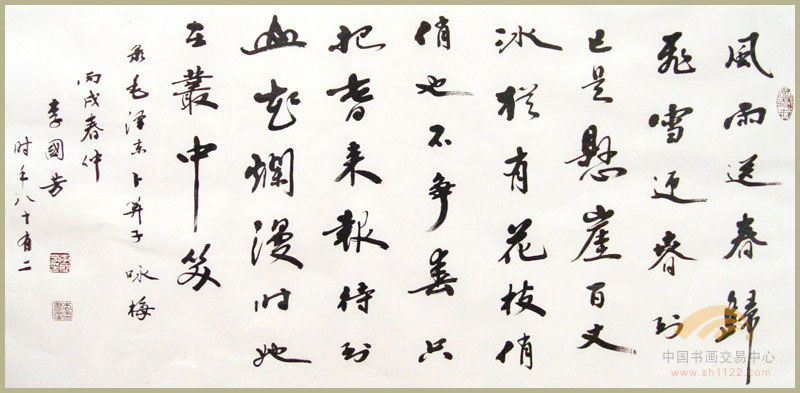 風雨送春歸
飛雪迎春到
已是懸崖百丈
冰猶有花枝俏
俏也不爭春只
把春来報待到
山花爛漫时她
在叢中笑
录毛澤东卜算子 咏梅
丙戌春仲
李國芳
时年八十有二
中国书画交易中心
www.sh1122.com